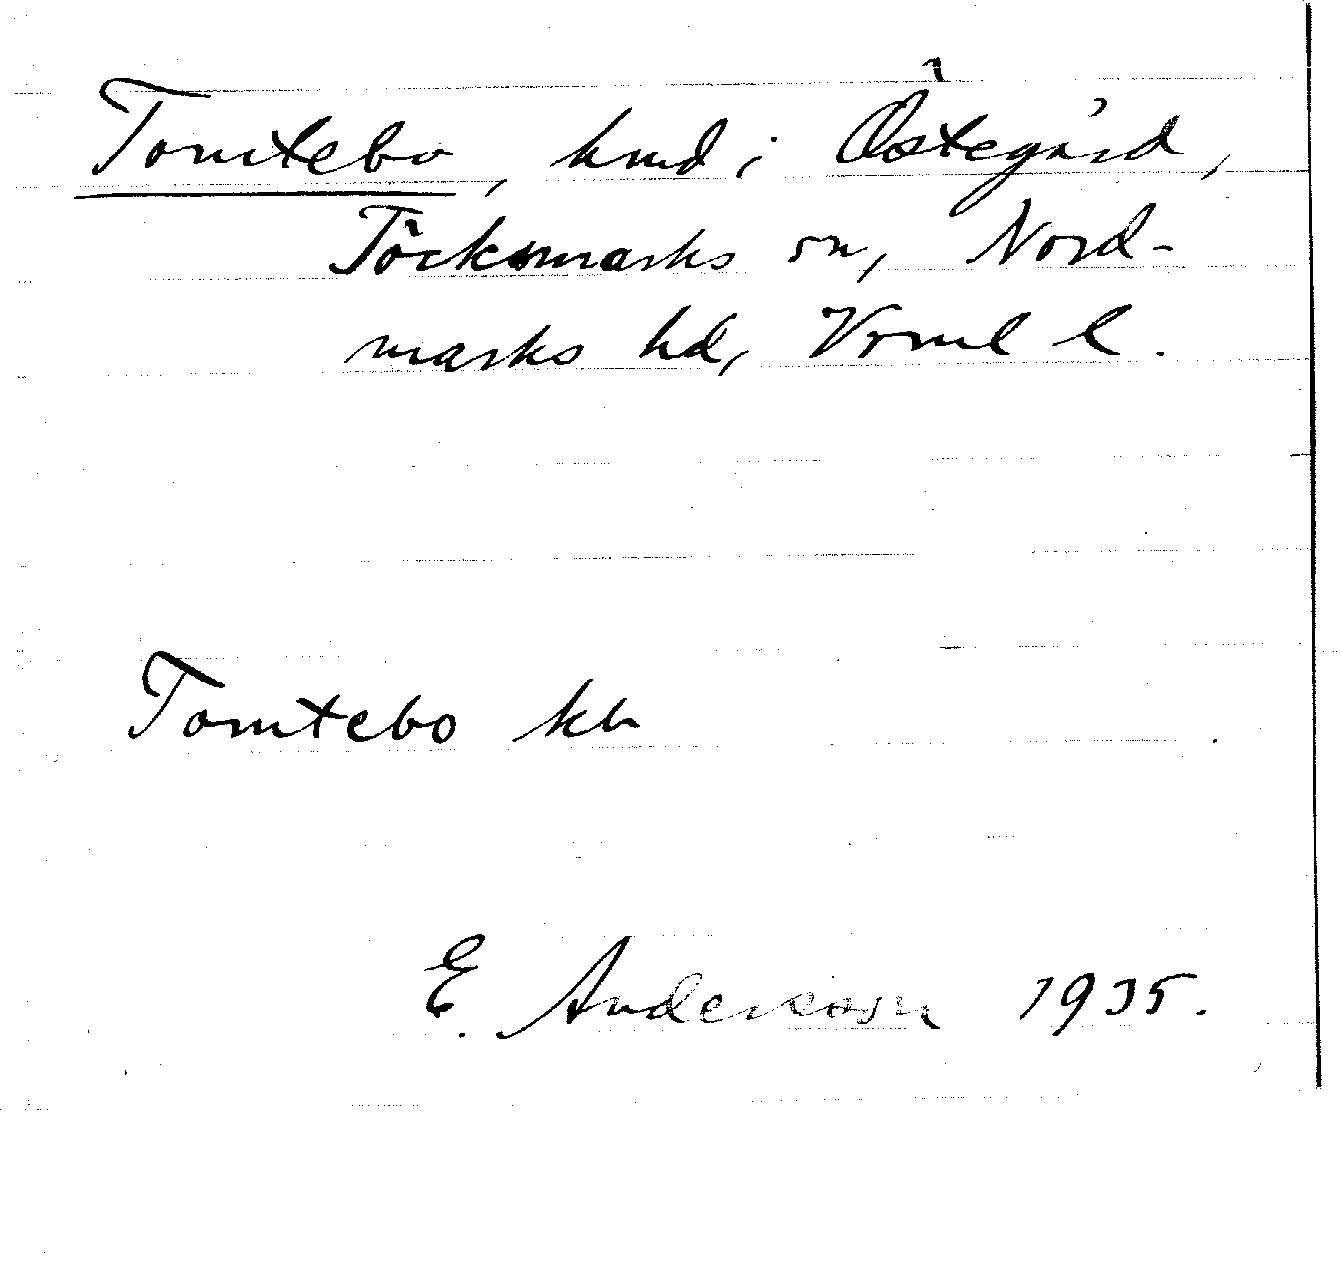 Tomtebo, hmd i Östegård,
Töcksmarks sn, Nord-
marks hd, Vrml l.
Tomtebo kb
E. Andersson 1935.